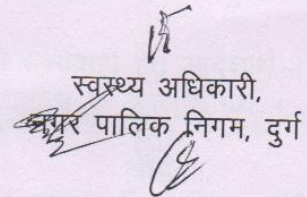 स्वस्थ्य अधिकारी,
नगर पालिक निगम, दुर्ग